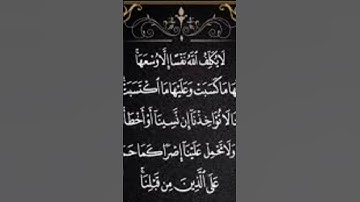 لَا يُكَلِّفُ ٱللَّهُ نَفْسًا إِلَّا وُسْعَهَا ۚ
هَا مَا كَسَبَتْ وَعَلَيْهَا مَا ٱكْتَسَبَتْ
نَا لَا تُؤَاخِذْنَآ إِن نَّسِينَآ أَوْ أَخْطَأْ
وَلَا تَحْمِلْ عَلَيْنَآ إِصْرًا كَمَا حَمَ
عَلَى ٱلَّذِينَ مِن قَبْلِنَا ۚ